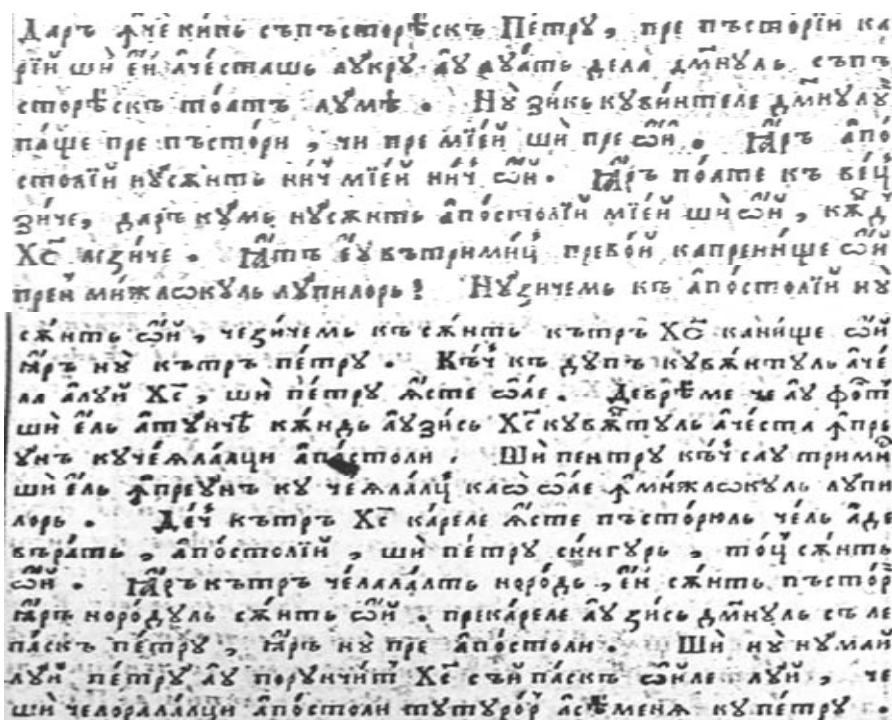 Даръ ꙟ҆чѐ ки́пь съпъсторѣ́скъ Пе́трꙋ, пре пъсто́рїи ка
рїй шѝ є҆́й а҆че́сташь лꙋ́крꙋ а҆́ꙋ лꙋа́ть дела̀ дм҃нꙋль съпъ
сторѣ́скъ то́атъ лꙋ́мѣ . Нꙋ̀ зи́кь кꙋви́нтеле дм҃нꙋлꙋй
па́ще пре пъсто́ри , чи пре мїе́й шѝ пре ѻ҆́й . ꙗ҆́ръ а҆по́
столїй нꙋсѫ́нть ни́ч мїе́й ни́ч ѻ҆́й . ꙗ҆́ръ по́атe къ ве́ц
зи́че, даръ кꙋ́мь нꙋсѫ́нть а҆по́столїй мїе́й шѝ ѻ҆́й , кѫ́д
Хс҃ ле зи́че . ꙗ҆́тъ є҆́ꙋ въ трими́ц превѻ́й ка пре ни́ще ѻ҆́й
прeн ми́жлокꙋль лꙋ́пилорь! Нꙋ зи́чемь къ а҆по́столїй нꙋ̀
сѫ́нть ѻ҆́й , че зи́чемь къ сѫ́нть къ́тръ Хс҃ ка ни́ще ѻ҆́й
ꙗ҆́ръ нꙋ̀ къ́тръ пе́трꙋ . Къ́ч къ дꙋ́пъ кꙋвѫ́нтꙋль а҆че́
ла а҆лꙋ́й Хс҃ , шѝ пе́трꙋ ѩ҆́сте ѻ҆́ае . Девре́ме че а҆́ꙋ фо́ст
шѝ є҆́ль а҆тꙋ́нчѣ кѫ́ндь а҆́ꙋ зи́сь Хс҃ кꙋвѫ́нтꙋль а҆че́ста ꙟ҆пре
ꙋнъ кꙋ чеѧла́лци а҆по́столи . Шѝ пентрꙋ къ́ч са́ꙋ трими́с
шѝ є҆́ль ꙟ҆преꙋнъ кꙋ чеѧла́лц ка ѻ҆ ѻ҆́ае ꙟ҆ ми́жлокꙋль лꙋпи
лорь . Де́ч къ́тръ Хс҃ ка́реле ѩ҆́сте пъсто́рюль че́ль а҆де
въра́ть , а҆по́столїй , шѝ пе́трꙋ си́нгꙋрь , то́ц сѫ́нть
ѻ҆́й . ꙗ҆́ръ къ́тръ че́лала́лть норо́дь , є҆́й сѫ́нть пъсто́р
ꙗ҆́ръ норо́дꙋль сѫ́нть ѻ҆́й . пре ка́реле а҆́ꙋ зи́сь дм҃нꙋль съ ле
па́скъ пе́трꙋ , ꙗ҆́ръ нꙋ̀ пре а҆по́столи . Шѝ нꙋ̀ нꙋма́й
лꙋ́й пе́трꙋ а҆́ꙋ порꙋнчи́т Хс҃ съ́й па́скъ ѻ҆́йле лꙋ́й , че
шѝ челорала́лци а҆по́столи тꙋтꙋро́р а҆сѣ́менѧ кꙋ пе́трꙋ .